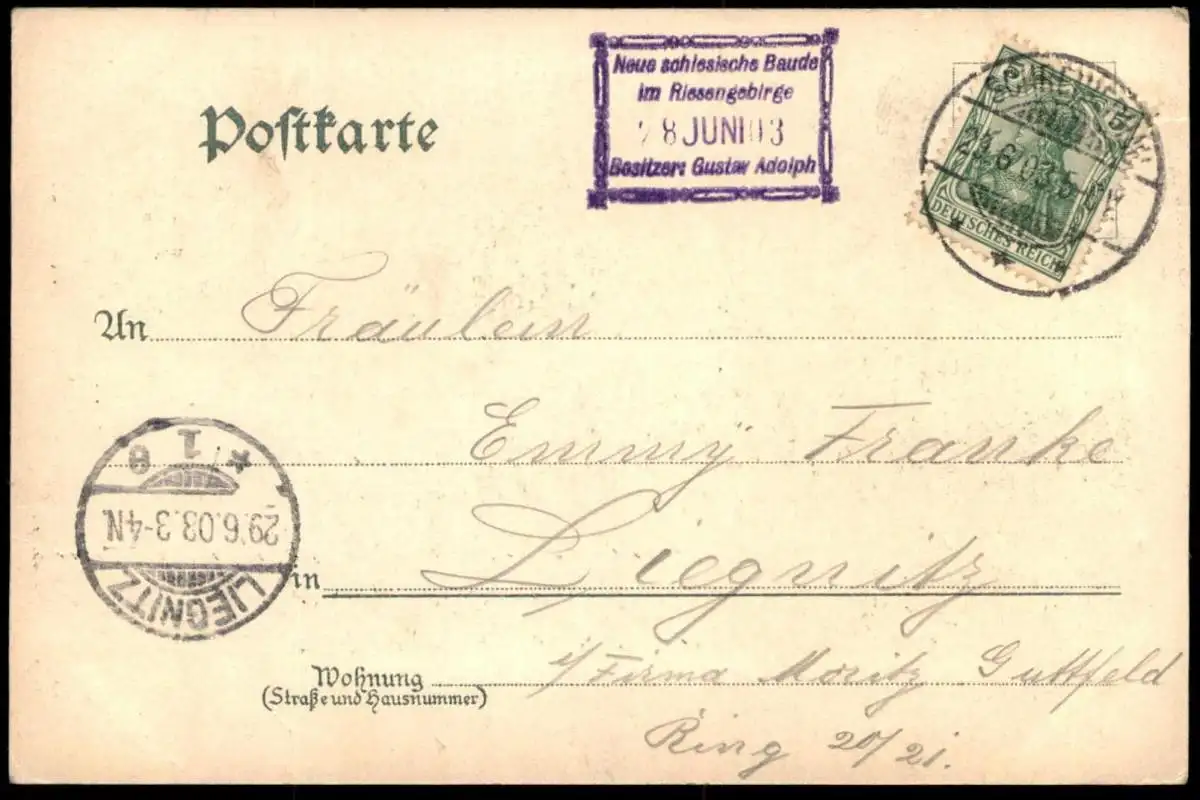 Postkarte
Neue schlesische Baude
im Riesengebirge
28 JUNI 03
Besitzer: Gustav Adolph
DEUTSCHES REICH
An Fräulein
Emmy Franke
in Liegnitz
Wohnung i/ Firma Moritz Guttfeld
(Straße und Hausnummer)
Ring 20/21.
LIEGNITZ
29.6.03.3-4N.
* 1 8